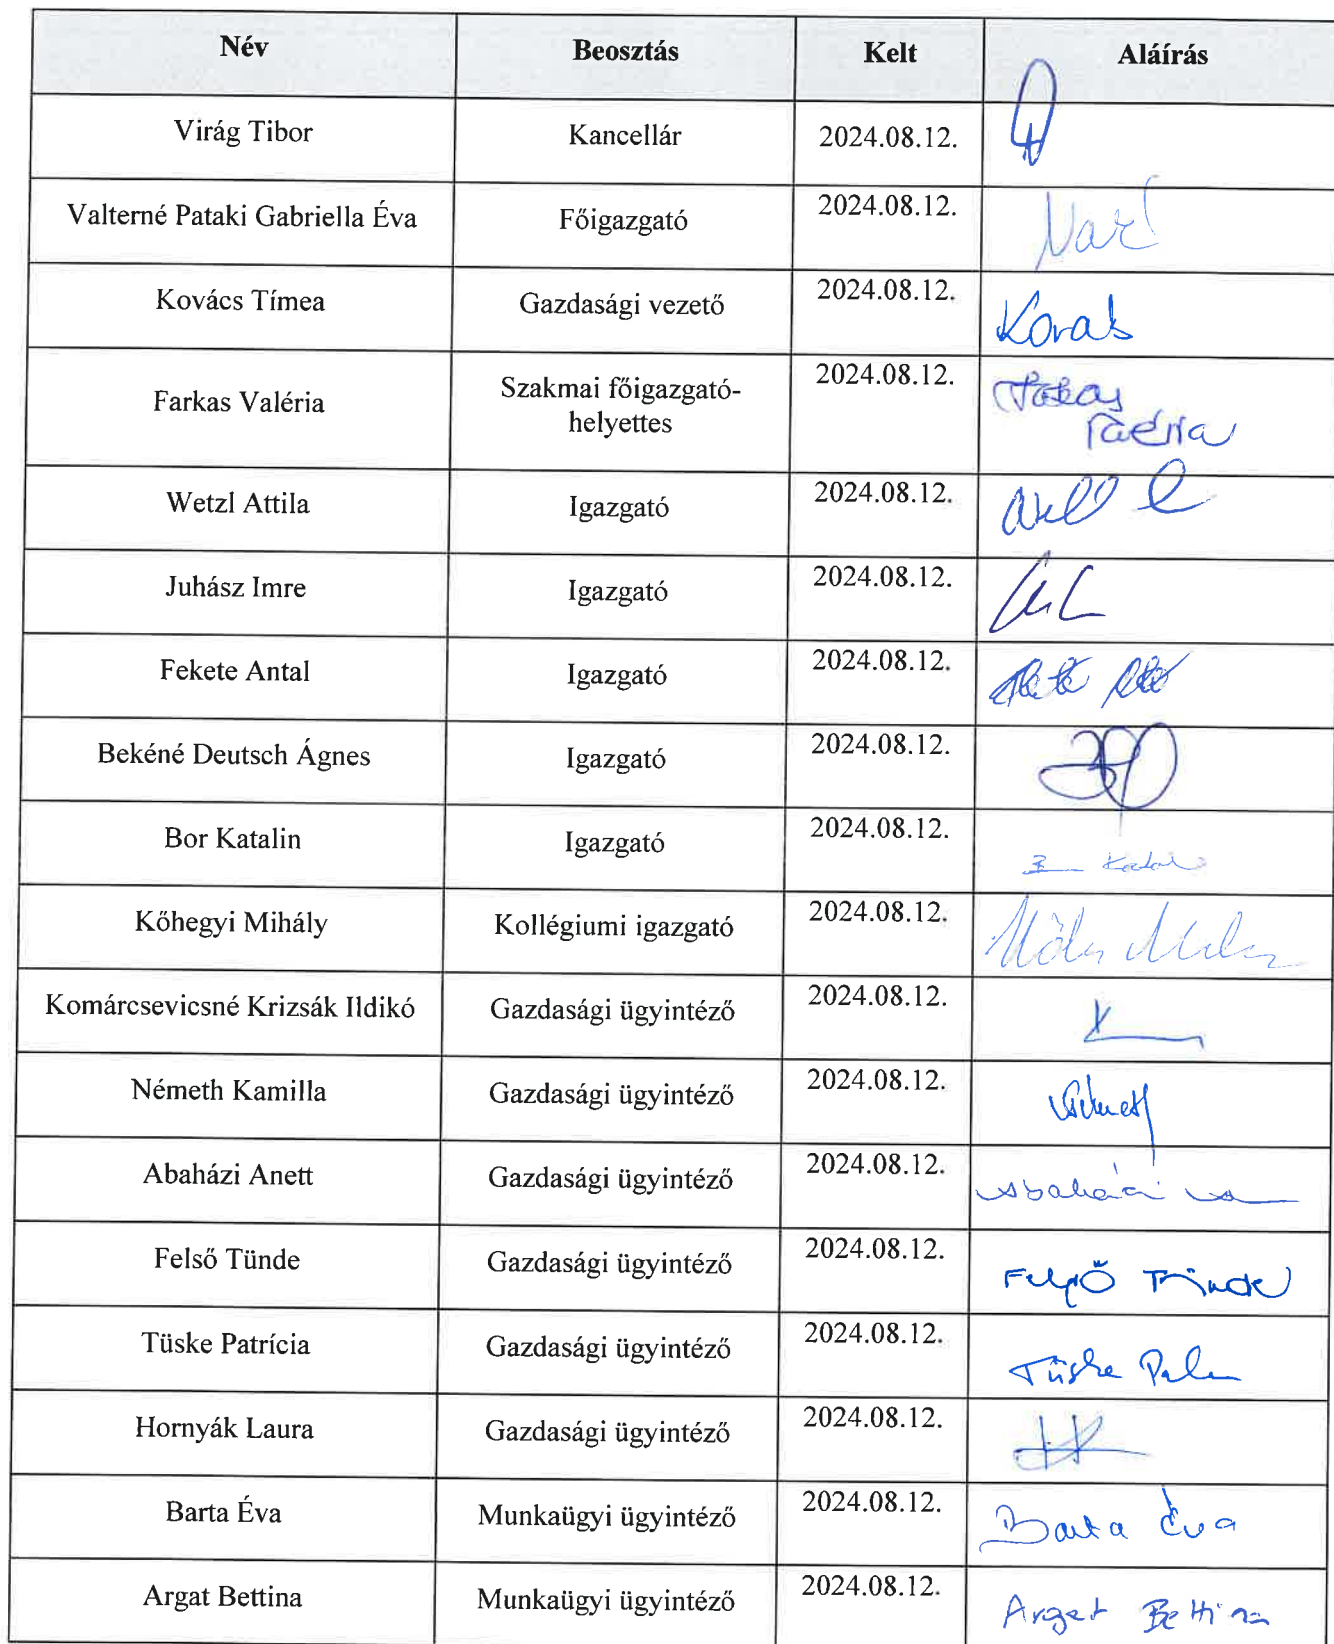 Név Beosztás Kelt Aláírás
Virág Tibor Kancellár 2024.08.12.
Valterné Pataki Gabriella Éva Főigazgató 2024.08.12.
Kovács Tímea Gazdasági vezető 2024.08.12.
Farkas Valéria Szakmai főigazgató-
helyettes 2024.08.12.
Wetzl Attila Igazgató 2024.08.12.
Juhász Imre Igazgató 2024.08.12.
Fekete Antal Igazgató 2024.08.12.
Bekéné Deutsch Ágnes Igazgató 2024.08.12.
Bor Katalin Igazgató 2024.08.12.
Kőhegyi Mihály Kollégiumi igazgató 2024.08.12.
Komárcsevicsné Krizsák Ildikó Gazdasági ügyintéző 2024.08.12.
Németh Kamilla Gazdasági ügyintéző 2024.08.12.
Abaházi Anett Gazdasági ügyintéző 2024.08.12.
Felső Tünde Gazdasági ügyintéző 2024.08.12. Felső Tünde
Tüske Patrícia Gazdasági ügyintéző 2024.08.12. Tüske
Hornyák Laura Gazdasági ügyintéző 2024.08.12.
Barta Éva Munkaügyi ügyintéző 2024.08.12. Barta Éva
Argat Bettina Munkaügyi ügyintéző 2024.08.12. Argat Bettina